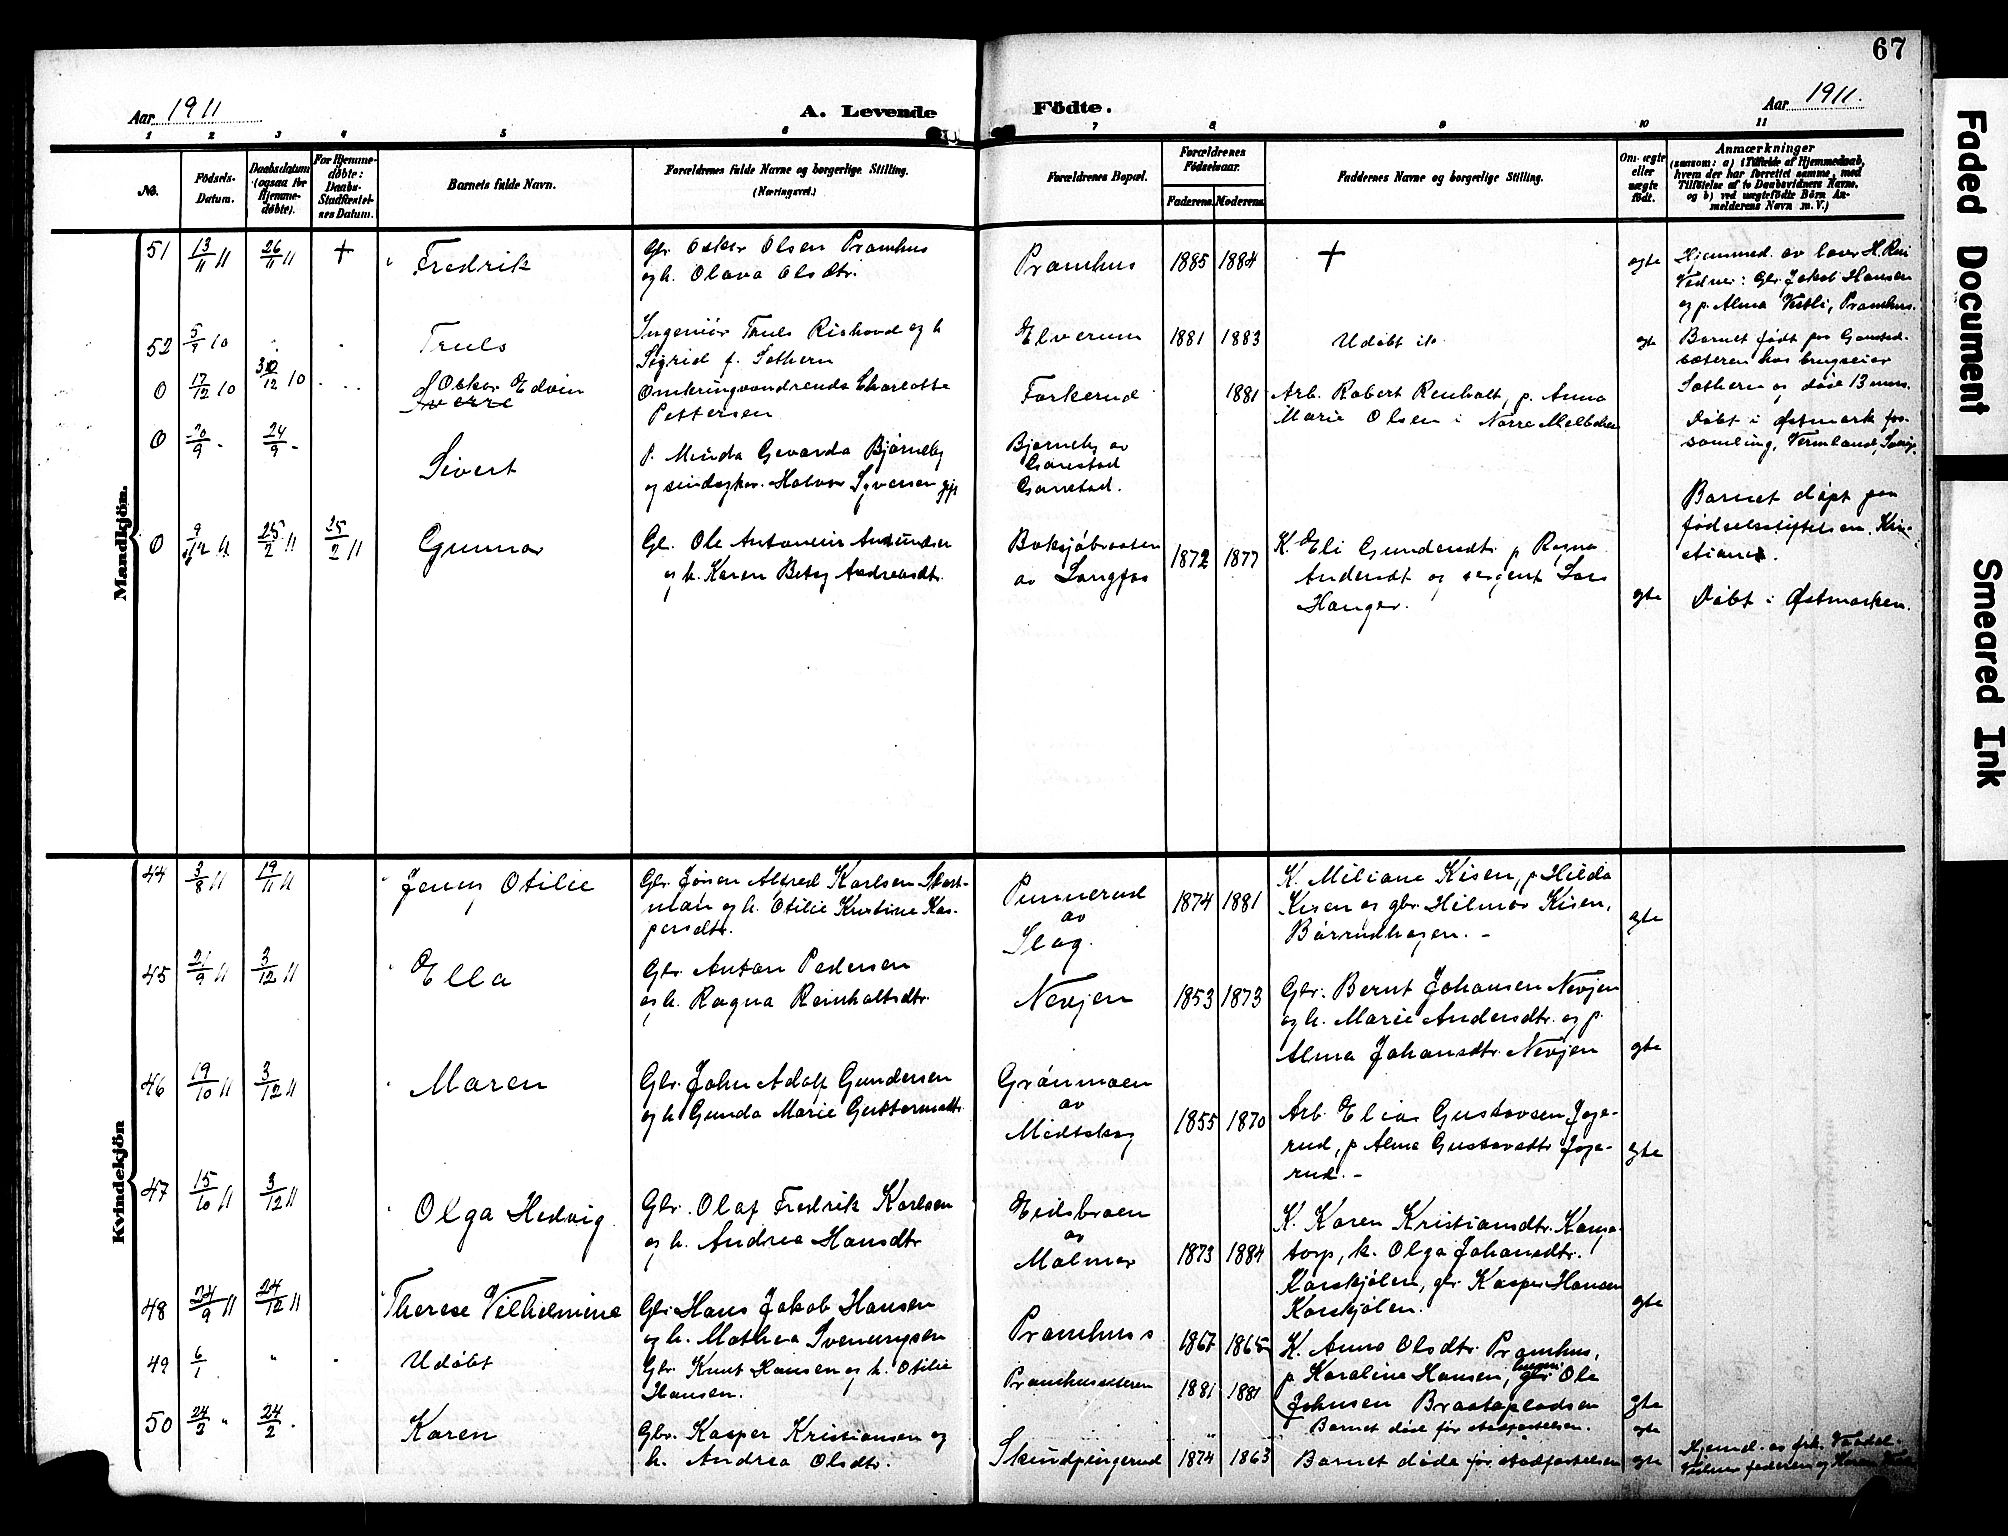 67
Aar 1911
A. Levende Födte.
Aar 1911.
1 2 3 4 5 6 7 8 9 10 11
No.
Födsels-Datum.
Daabsdatum (ogsaa for Hjemme-døbte).
For Hjemme-døbte: Daabs-Stadfæstel-ses Datum.
Barnets fulde Navn.
Forældrenes fulde Navne og borgerlige Stilling. (Næringsvei.)
Forældrenes Bopæl.
Forældrenes Födselsaar.
Faderens. Moderens.
Faddernes Navne og borgerlige Stilling.
Om ægte eller uægte födt.
Anmærkninger
(saasom: a) i Tilfælde af Hjemmedaab, hvem der har forrettet samme, med Tilföielse af to Daabsvidners Navne, og b) ved uægtefödte Börn Anmelderens Navn m. V.)
Mandkjön.
51 13/11 11 26/11 11 + Fredrik
Gbr. Oskar Olsen Pramhus
og h. Olava Olsdtr.
Pramhus 1885 1884 + ægte
Hjemmed. av lærer H. Rui
Vidner: Gbr. Jakob Hansen
og p. Alma Vestli, Pramhus.
52 5/9 10 Truls
Ingeniör Truls Rishovd og h
Sigrid f. Sothern
Elverum 1881 1883 Udöbt
ægte
Barnet födt paa
sæteren hos brugseier
Sothern og döde 13 mrs.
0 17/12 10 30/12 10 Oskar Edvin
Sverre
Omkringvandrende Charlotte
Pettersen
Forkerud 1881
Arb. Robert Renholt, p. Anna
Marie Olsen i Norre
Döbt i Østmark for-
samling, Vermland,
0 20/9 24/9 Sivert
P. Minda Gevarda Bjørneby
og Halvor Syversen
Bjørneby av
Garustad
Garustad.
Barnet döpt paa
födselsstiftelsen, Kri-
stiania.
0 9/12 11 25/2 11 25/2 11 Gunnar
Gbr. Ole Antonius Amundsen
og h. Karen Betsy Andreasdtr.
Boksjöbraaten
av Langfos
1872 1877
K. Eli Gundersdtr. p Ragna
Andersdt og sergent Lars
Hanger.
ægte
Döbt i Østmarken.
Kvindekjön
44 3/8 11 19/11 11 Jenny Otilie
Gbr. Jöran Alfred Karlsen
og h. Otilie Kristine Kas-
persdtr.
Punnerud
av
Slag.
1874 1881
K. Miliane Kisen, p Hilda
Kisen og gbr. Hilmar Kisen,
Børrudhagen. –
ægte
45 21/9 11 3/12 11 Ella
Gbr. Anton Pedersen
og h. Ragna Reinholtsdtr.
Nevjen 1853 1873
Gbr. Bernt Johansen Nevjen
og h. Marie Andersdtr. og p.
Alma Johansdtr. Nevjen
ægte
46 19/10 11 3/12 11 Maren
Gbr. John Adolf Gundersen
og h Gunda Marie
Grönmoen
av
Midtskog
1855 1870
Arb. Elias Gustavsen Joge-
rud, p Alma Gustavsdtr Joge-
rud. –
ægte
47 15/10 11 3/12 11 Olga Hedvig
Gbr. Olaf Fredrik Karlsen
og h. Andrea Hansdtr
Eidsbraen
av
Malmer
1873 1884
K. Karen Kristiansdtr. Kansa-
torp, k. Olga Johansdtr.
Korskjölen, gbr Kasper Hansen
Korskjölen.
ægte
48 24/9 11 24/12 11 Therese Vilhelmine
Gbr. Hans Jakob Hansen
og h. Mathea Svenungsen
Pramhus 1867 1865
K. Anna Olsdtr. Pramhus,
p Karoline Hansen, gbr Ole
Johnsen Braatapladsen
ægte
49 6/1 Udöbt
Gbr. Knut Hansen og h. Otilie
Hansen.
Pramhussæteren 1881 1881
Barnet döde för stadfæstelsen.
ægte
50 24/2 24/2 Karen
Gbr. Kasper Kristiansen og
h. Andrea Olsdtr.
1874 1863
Barnet döde för stadfæstelsen
ægte
Hjemd. av
faderen og Karen
Faded Document
Smeared Ink